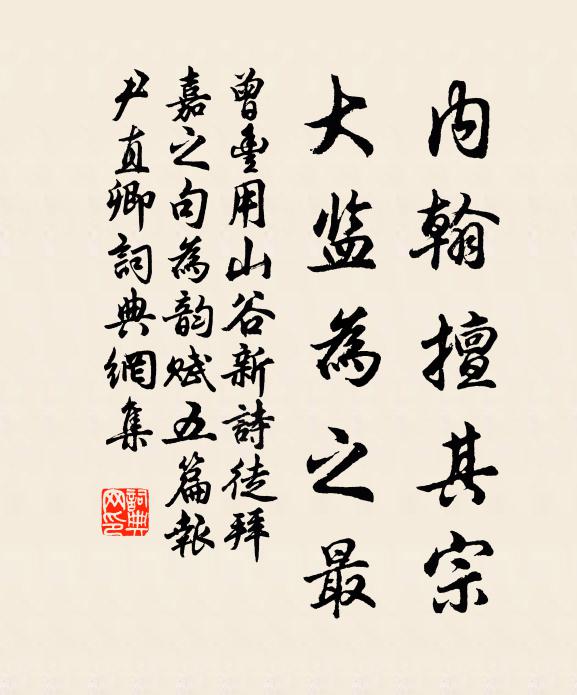 内翰擅其宗
大监為之最
曾豊用山谷新詩徒拜
嘉之句為韵赋五篇報
尹直卿詞典網集
詞典
网印